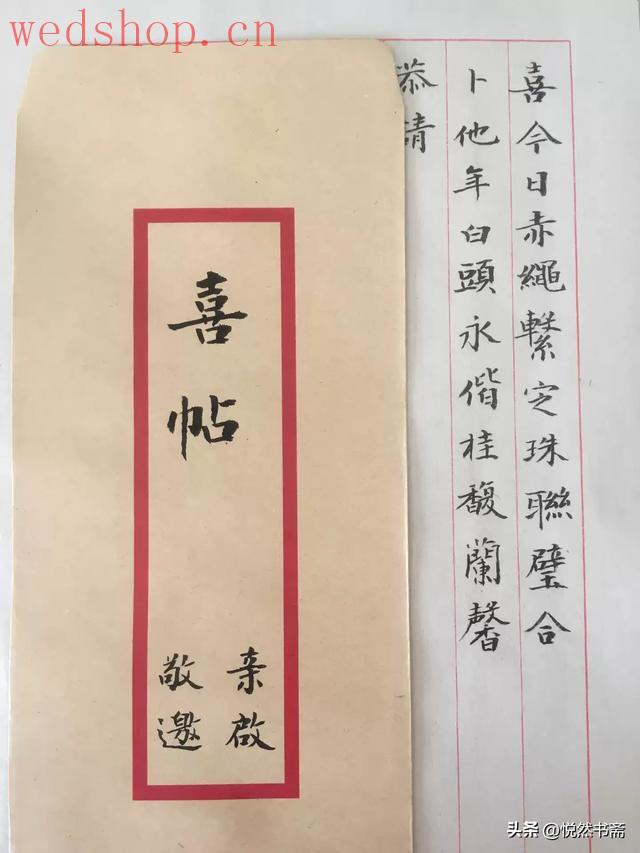 wedshop.cn
喜今日赤繩繫定珠聯璧合
卜他年白頭永偕桂馥蘭馨
恭請
喜帖
亲啟
敬邀
头条 @悦然书斋